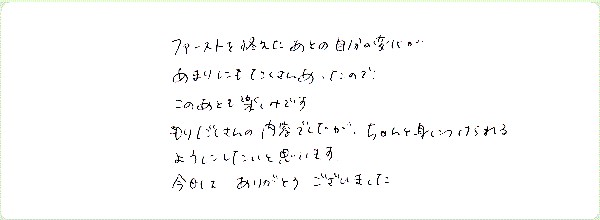 ファーストを終えたあとの自分の変化が
あまりにもたくさんあったので
このあとも楽しみです
もりだくさんの内容でしたが、ちゃんと身につけられる
ようにしたいと思います
今日は ありがとう ございました